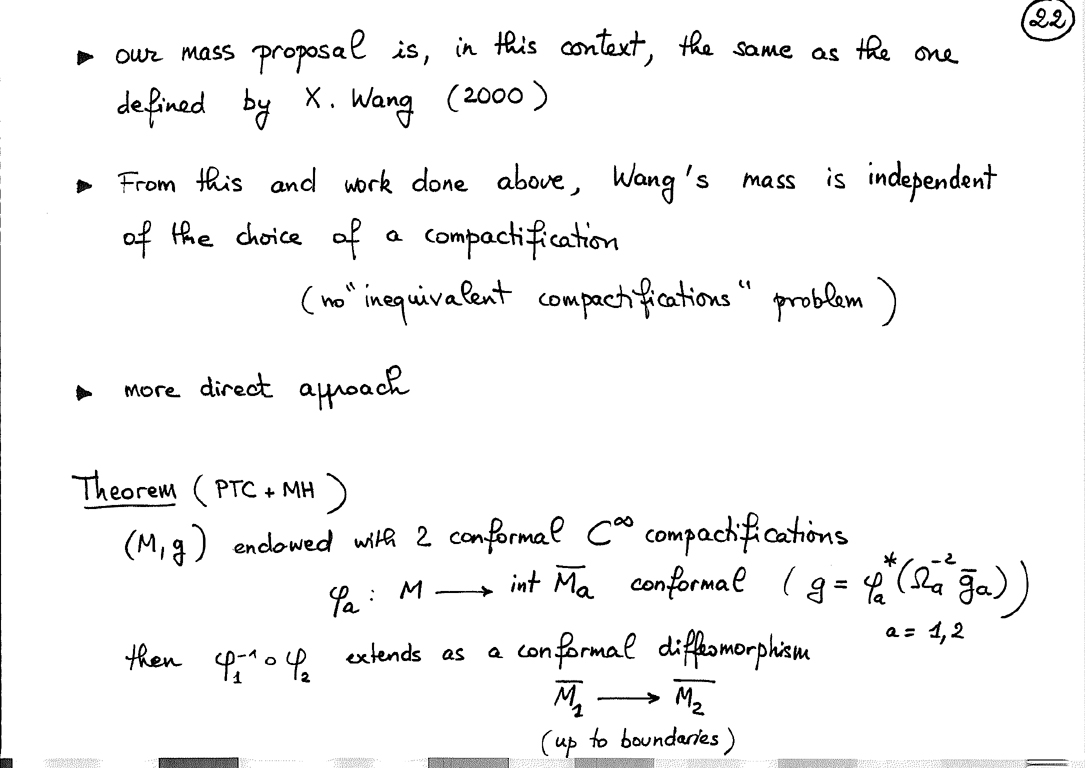 22
▶ our mass proposal is, in this context, the same as the one
defined by X. Wang (2000)
▶ From this and work done above, Wang's mass is independent
of the choice of a compactification
(no "inequivalent compactifications" problem)
▶ more direct approach
Theorem (PTC + MH)
(M, g) endowed with 2 conformal C^∞ compactifications
φ_a : M ⟶ int M̄_a conformal (g = φ_a^*(Ω_a^{-2} ḡ_a))
a = 1,2
then φ_1^{-1} ∘ φ_2 extends as a conformal diffeomorphism
M̄_1 ⟶ M̄_2
(up to boundaries)